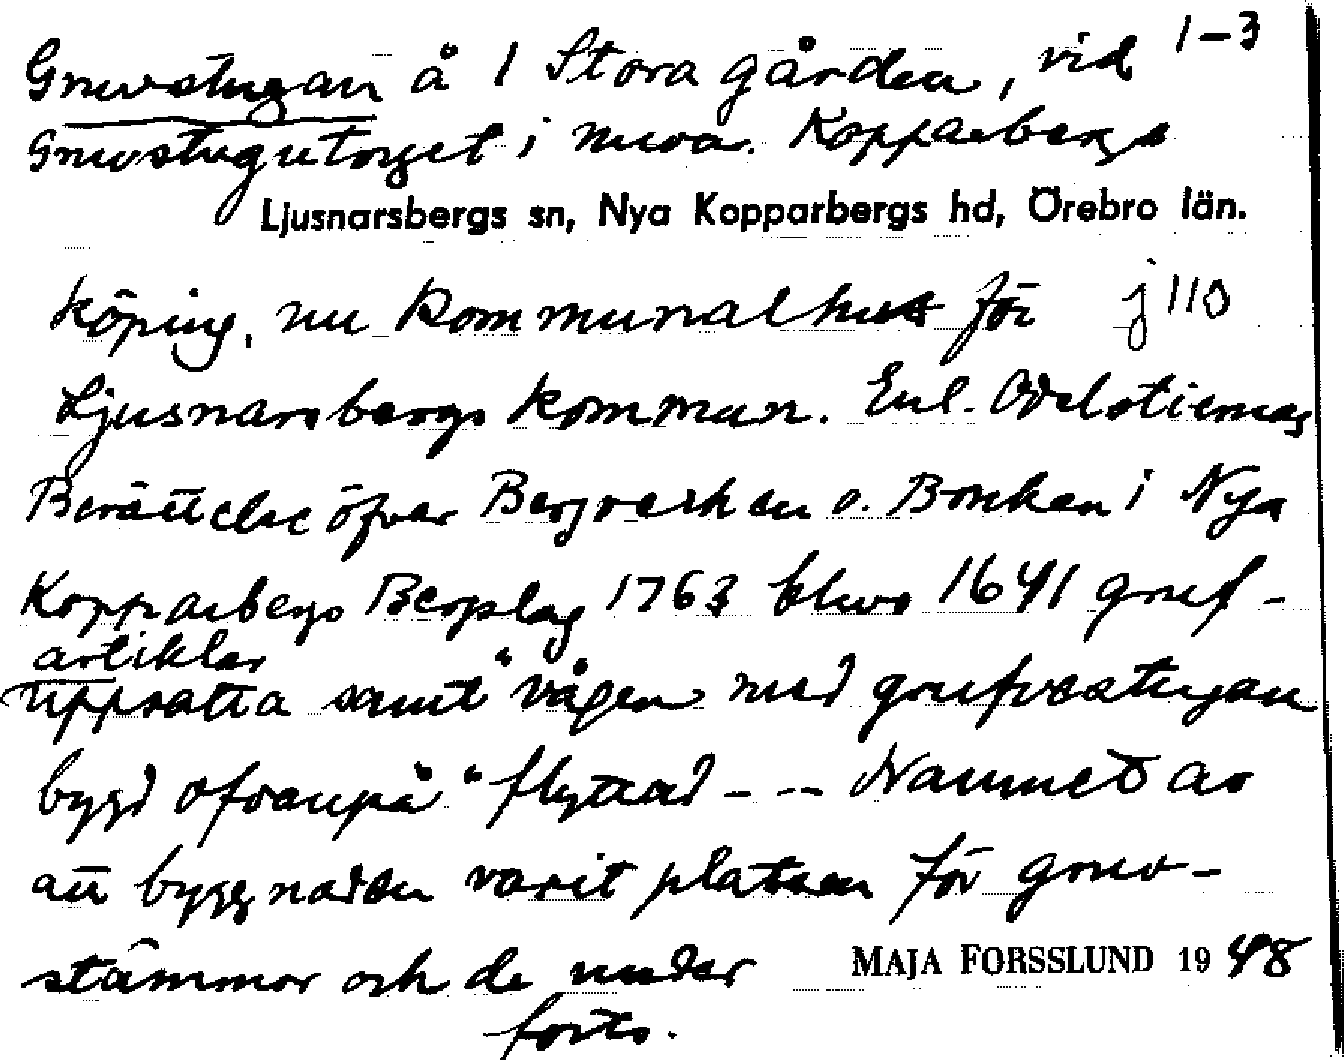 Gruvstugan å 1 Stora gården, vid 1-3
Gruvstugutorget i nuva. Kopparbergs
Ljusnarsbergs sn, Nya Kopparbergs hd, Örebro län.
köping, nu kommunalhus för j 110
Ljusnarsbergs kommun. Enl. Odelstiernas
Berättelse öfver Bergverken o. Bruken i Nya
Kopparbergs Bergslag 1763 blevo 1641 gruf-
artiklar
uppsatta samt "vågen med grufvestugan
bygd ofvanpå" flyttad - -- Namnet av
att byggnaden varit platsen för gruv-
stämmor och de under MAJA FORSSLUND 1948
forts.